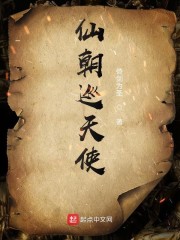 仙朝巡天使
著
起点中文网